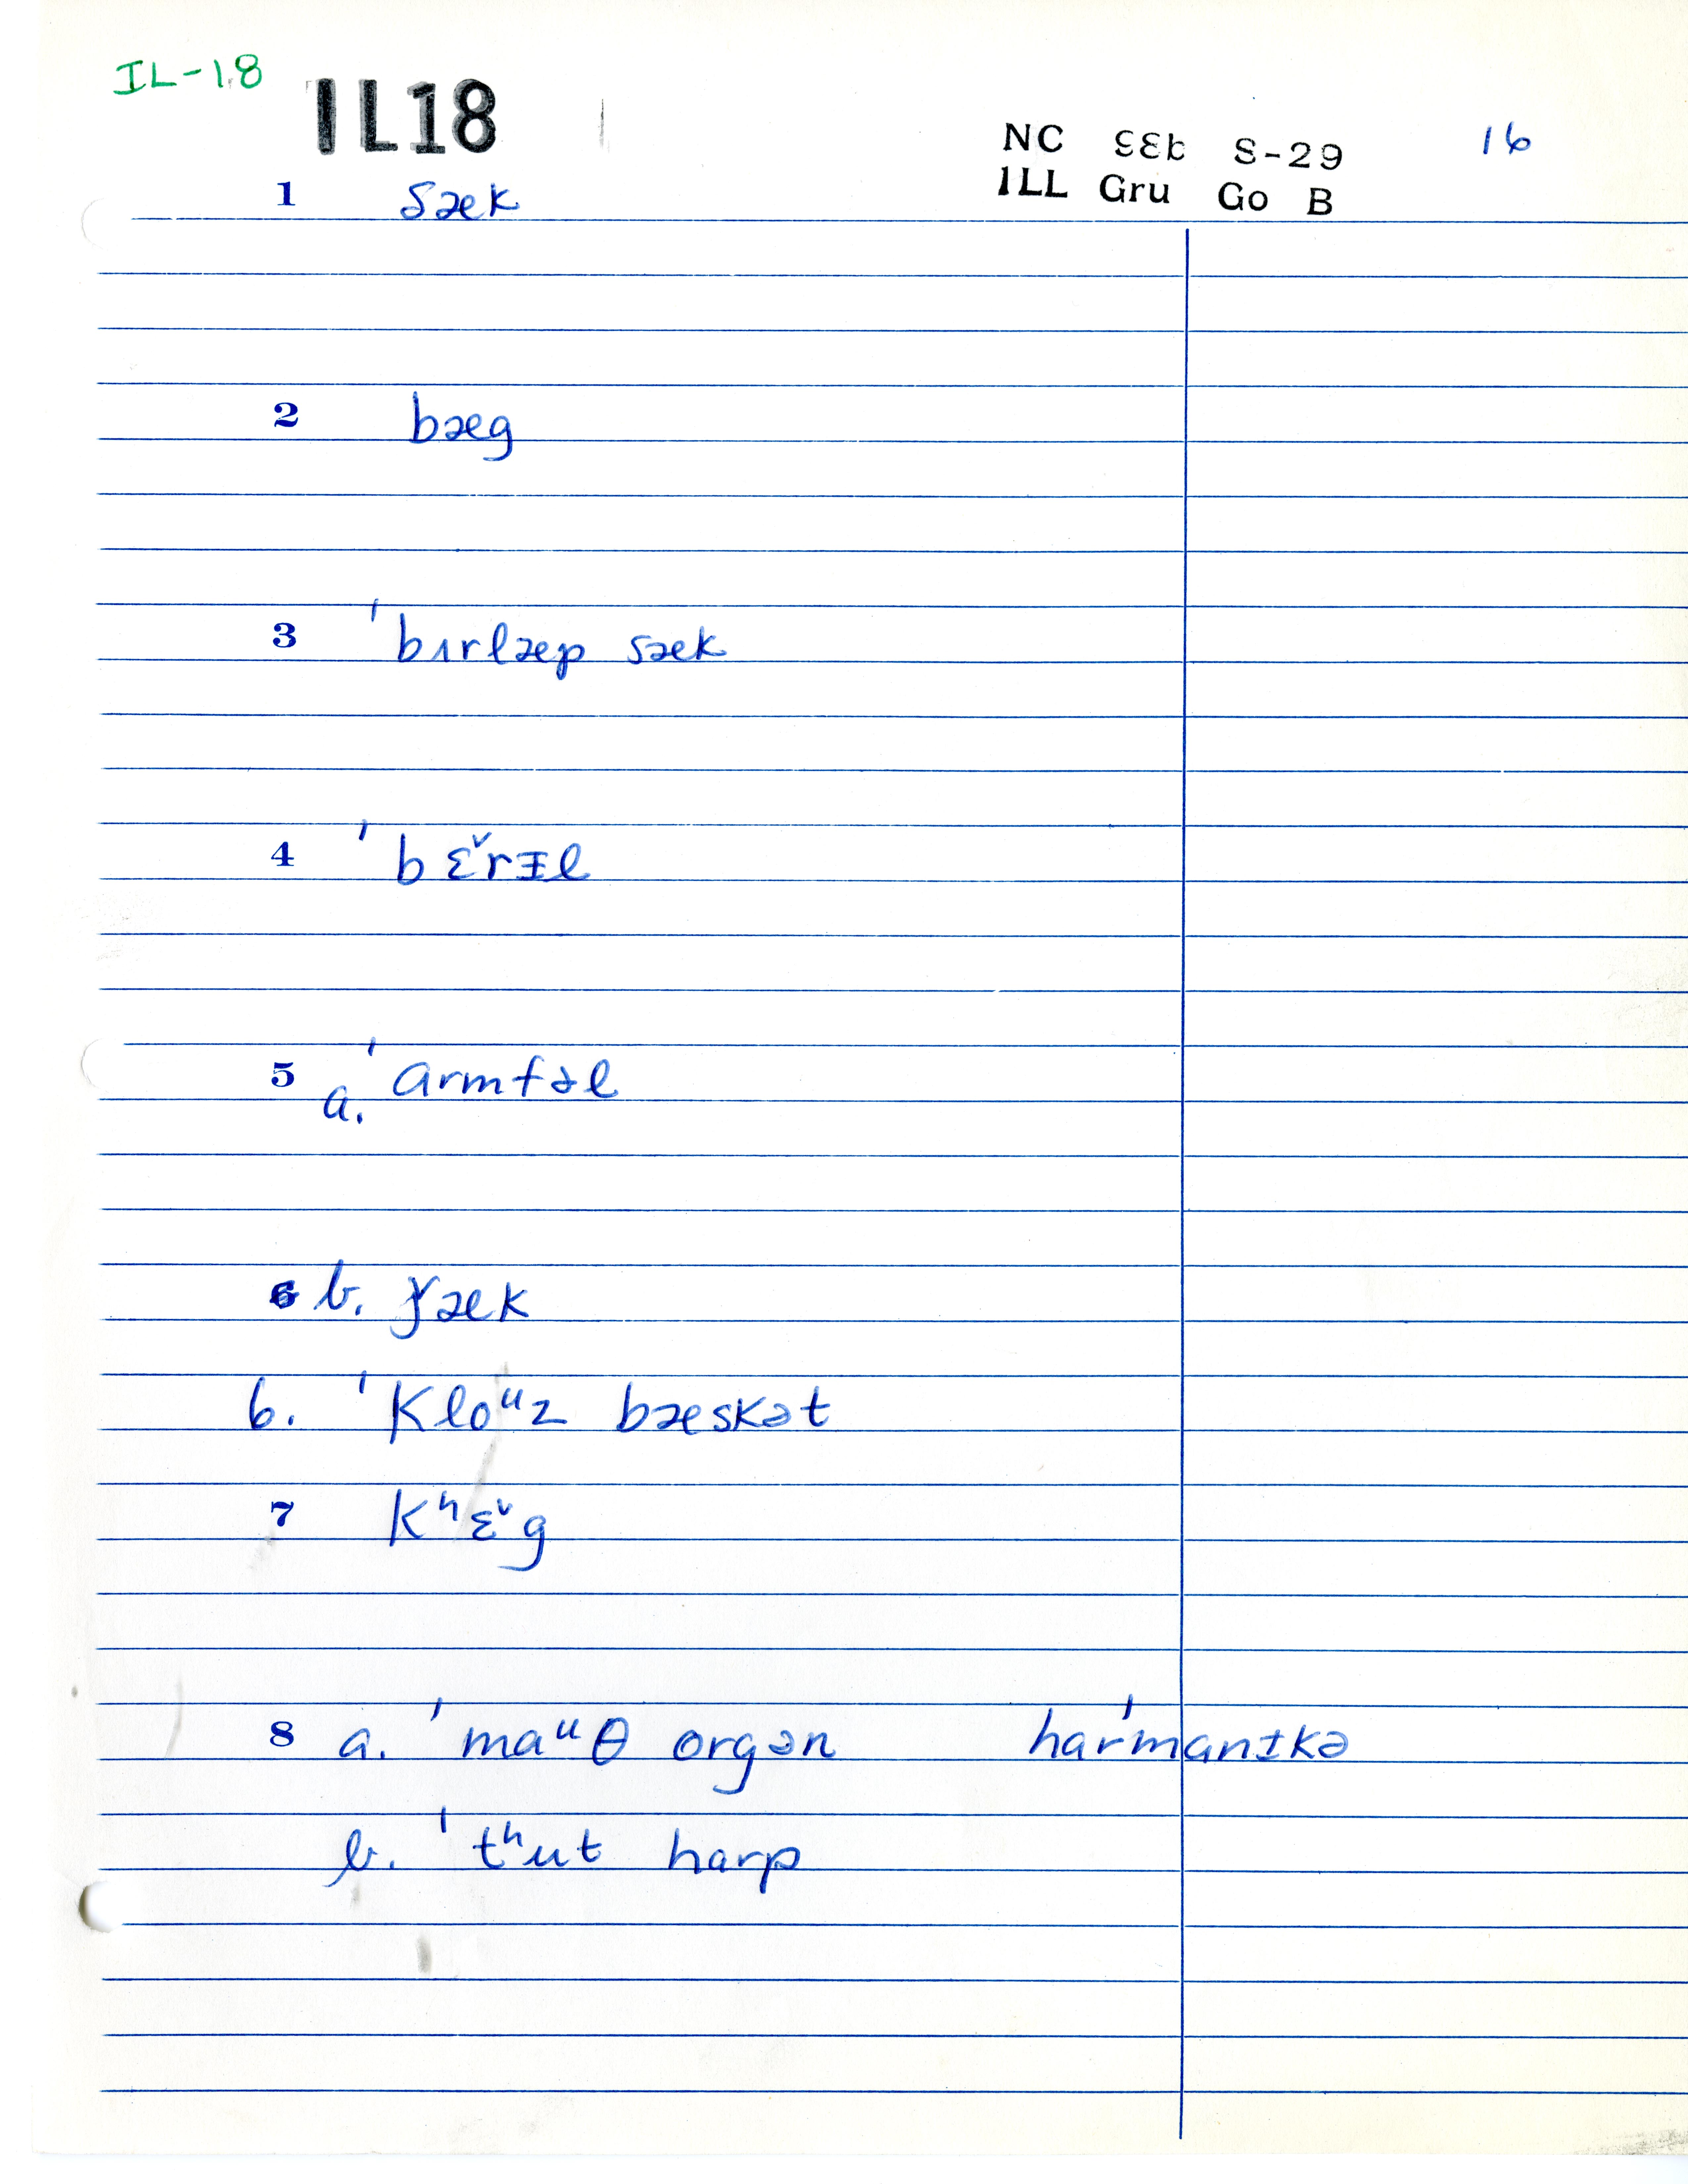 IL-18
IL18
NC 933 S-29 16
ILL Gru Go B
1 sæk
2 bæg
3 ˈbɪrlæp sæk
4 ˈbɛ˅rɪl
5 a. ˈarmfəl
6 b. ɟæk
6. ˈkloᵘz bæskət
7 kʰɛ˅g
8 a. ˈmaᵘθ orgən harˈmanɪkə
b. ˈtʰut harp